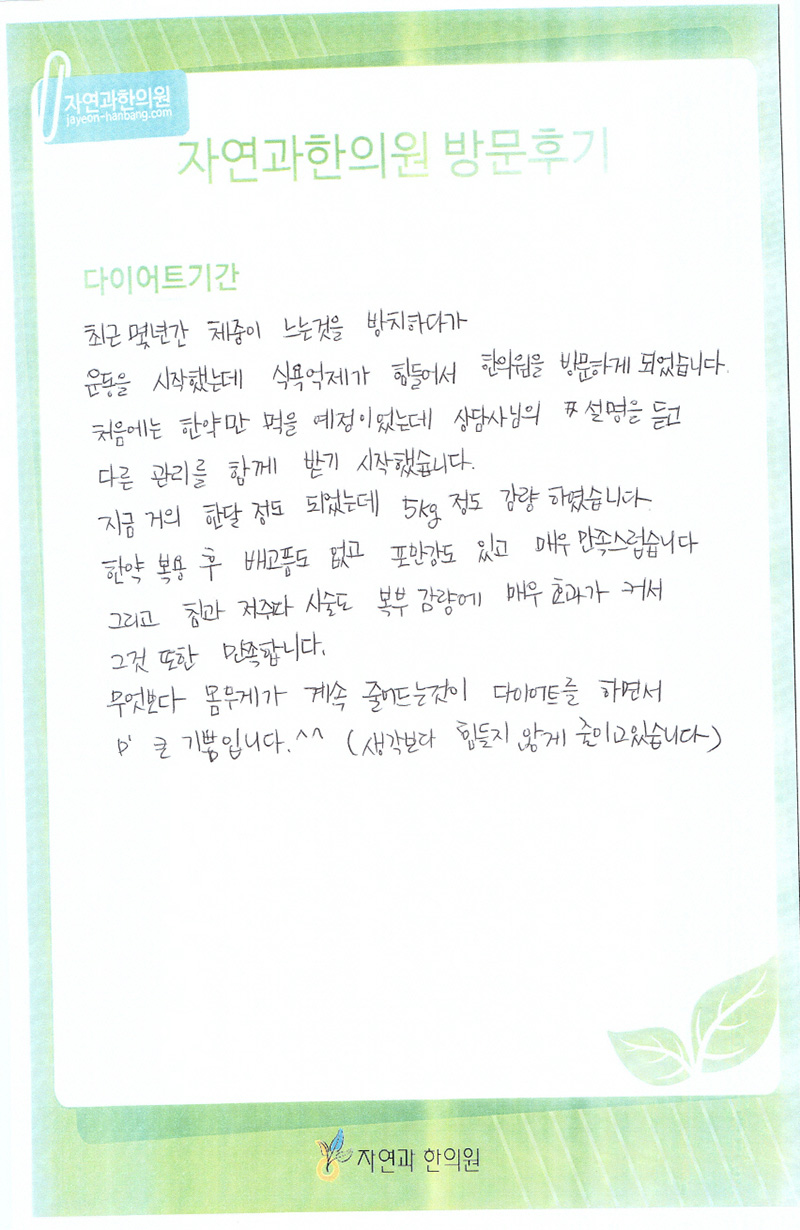 자연과한의원
jayeon-hanbang.com
자연과한의원 방문후기
다이어트기간
최근 몇년간 체중이 느는것을 방치하다가
운동을 시작했는데 식욕억제가 힘들어서 한의원을 방문하게 되었습니다.
처음에는 한약만 먹을 예정이었는데 상담사님의 설명을 듣고
다른 관리를 함께 받기 시작했습니다.
지금 거의 한달 정도 되었는데 5kg 정도 감량 하였습니다.
한약 복용 후 배고픔도 없고 포만감도 있고 매우 만족스럽습니다
그리고 침과 저주파 시술도 복부 감량에 매우 효과가 커서
그것 또한 만족합니다.
무엇보다 몸무게가 계속 줄어드는것이 다이어트를 하면서
큰 기쁨입니다.^^ (생각보다 힘들지 않게 줄이고있습니다)
자연과 한의원